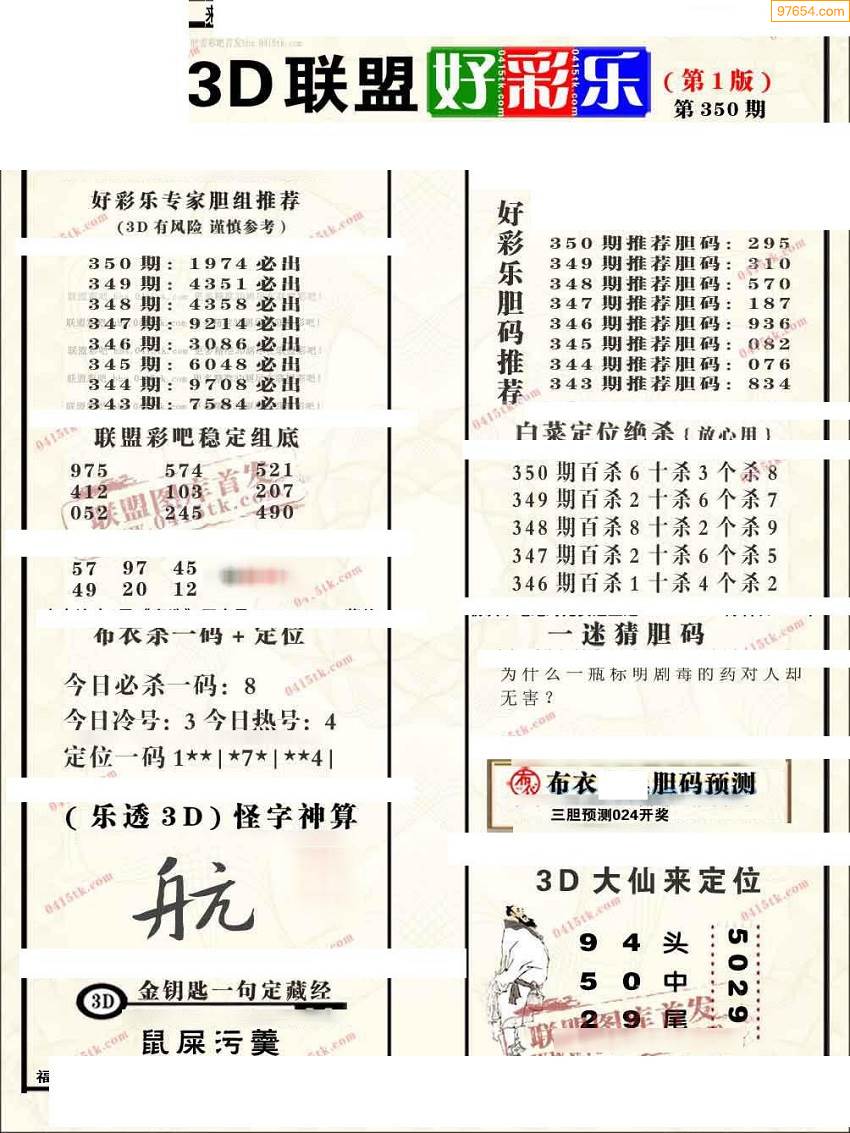 97654.com
3D联盟好彩乐(第1版)
第350期
好彩乐专家胆组推荐
(3D有风险 谨慎参考)
350期:1974必出
349期:4351必出
348期:4358必出
347期:9214必出
346期:3086必出
345期:6048必出
344期:9708必出
343期:7584必出
联盟彩吧稳定组底
975 574 521
412 103 207
052 245 490
57 97 45
49 20 12
布衣杀一码+定位
今日必杀一码:8
今日冷号:3 今日热号:4
定位一码1**|*7*|**4|
(乐透3D)怪字神算
3D 金钥匙一句定藏经
鼠屎污羹
福
好彩乐胆码推荐
350期推荐胆码:295
349期推荐胆码:310
348期推荐胆码:570
347期推荐胆码:187
346期推荐胆码:936
345期推荐胆码:082
344期推荐胆码:076
343期推荐胆码:834
白菜定位绝杀{放心用}
350期百杀6十杀3个杀8
349期百杀2十杀6个杀7
348期百杀8十杀2个杀9
347期百杀2十杀6个杀5
346期百杀1十杀4个杀2
一迷猜胆码
为什么一瓶标明剧毒的药对人却
无害?
布衣 胆码预测
三胆预测024开奖
3D大仙来定位
94头
50中
29尾
5029
联盟图库首发
0415tk.com